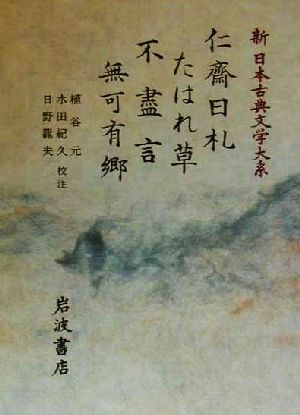 新 日本古典文学大系
仁齋日札
たはれ草
不盡言
無可有郷
植谷 元
水田紀久 校注
日野龍夫
岩波書店